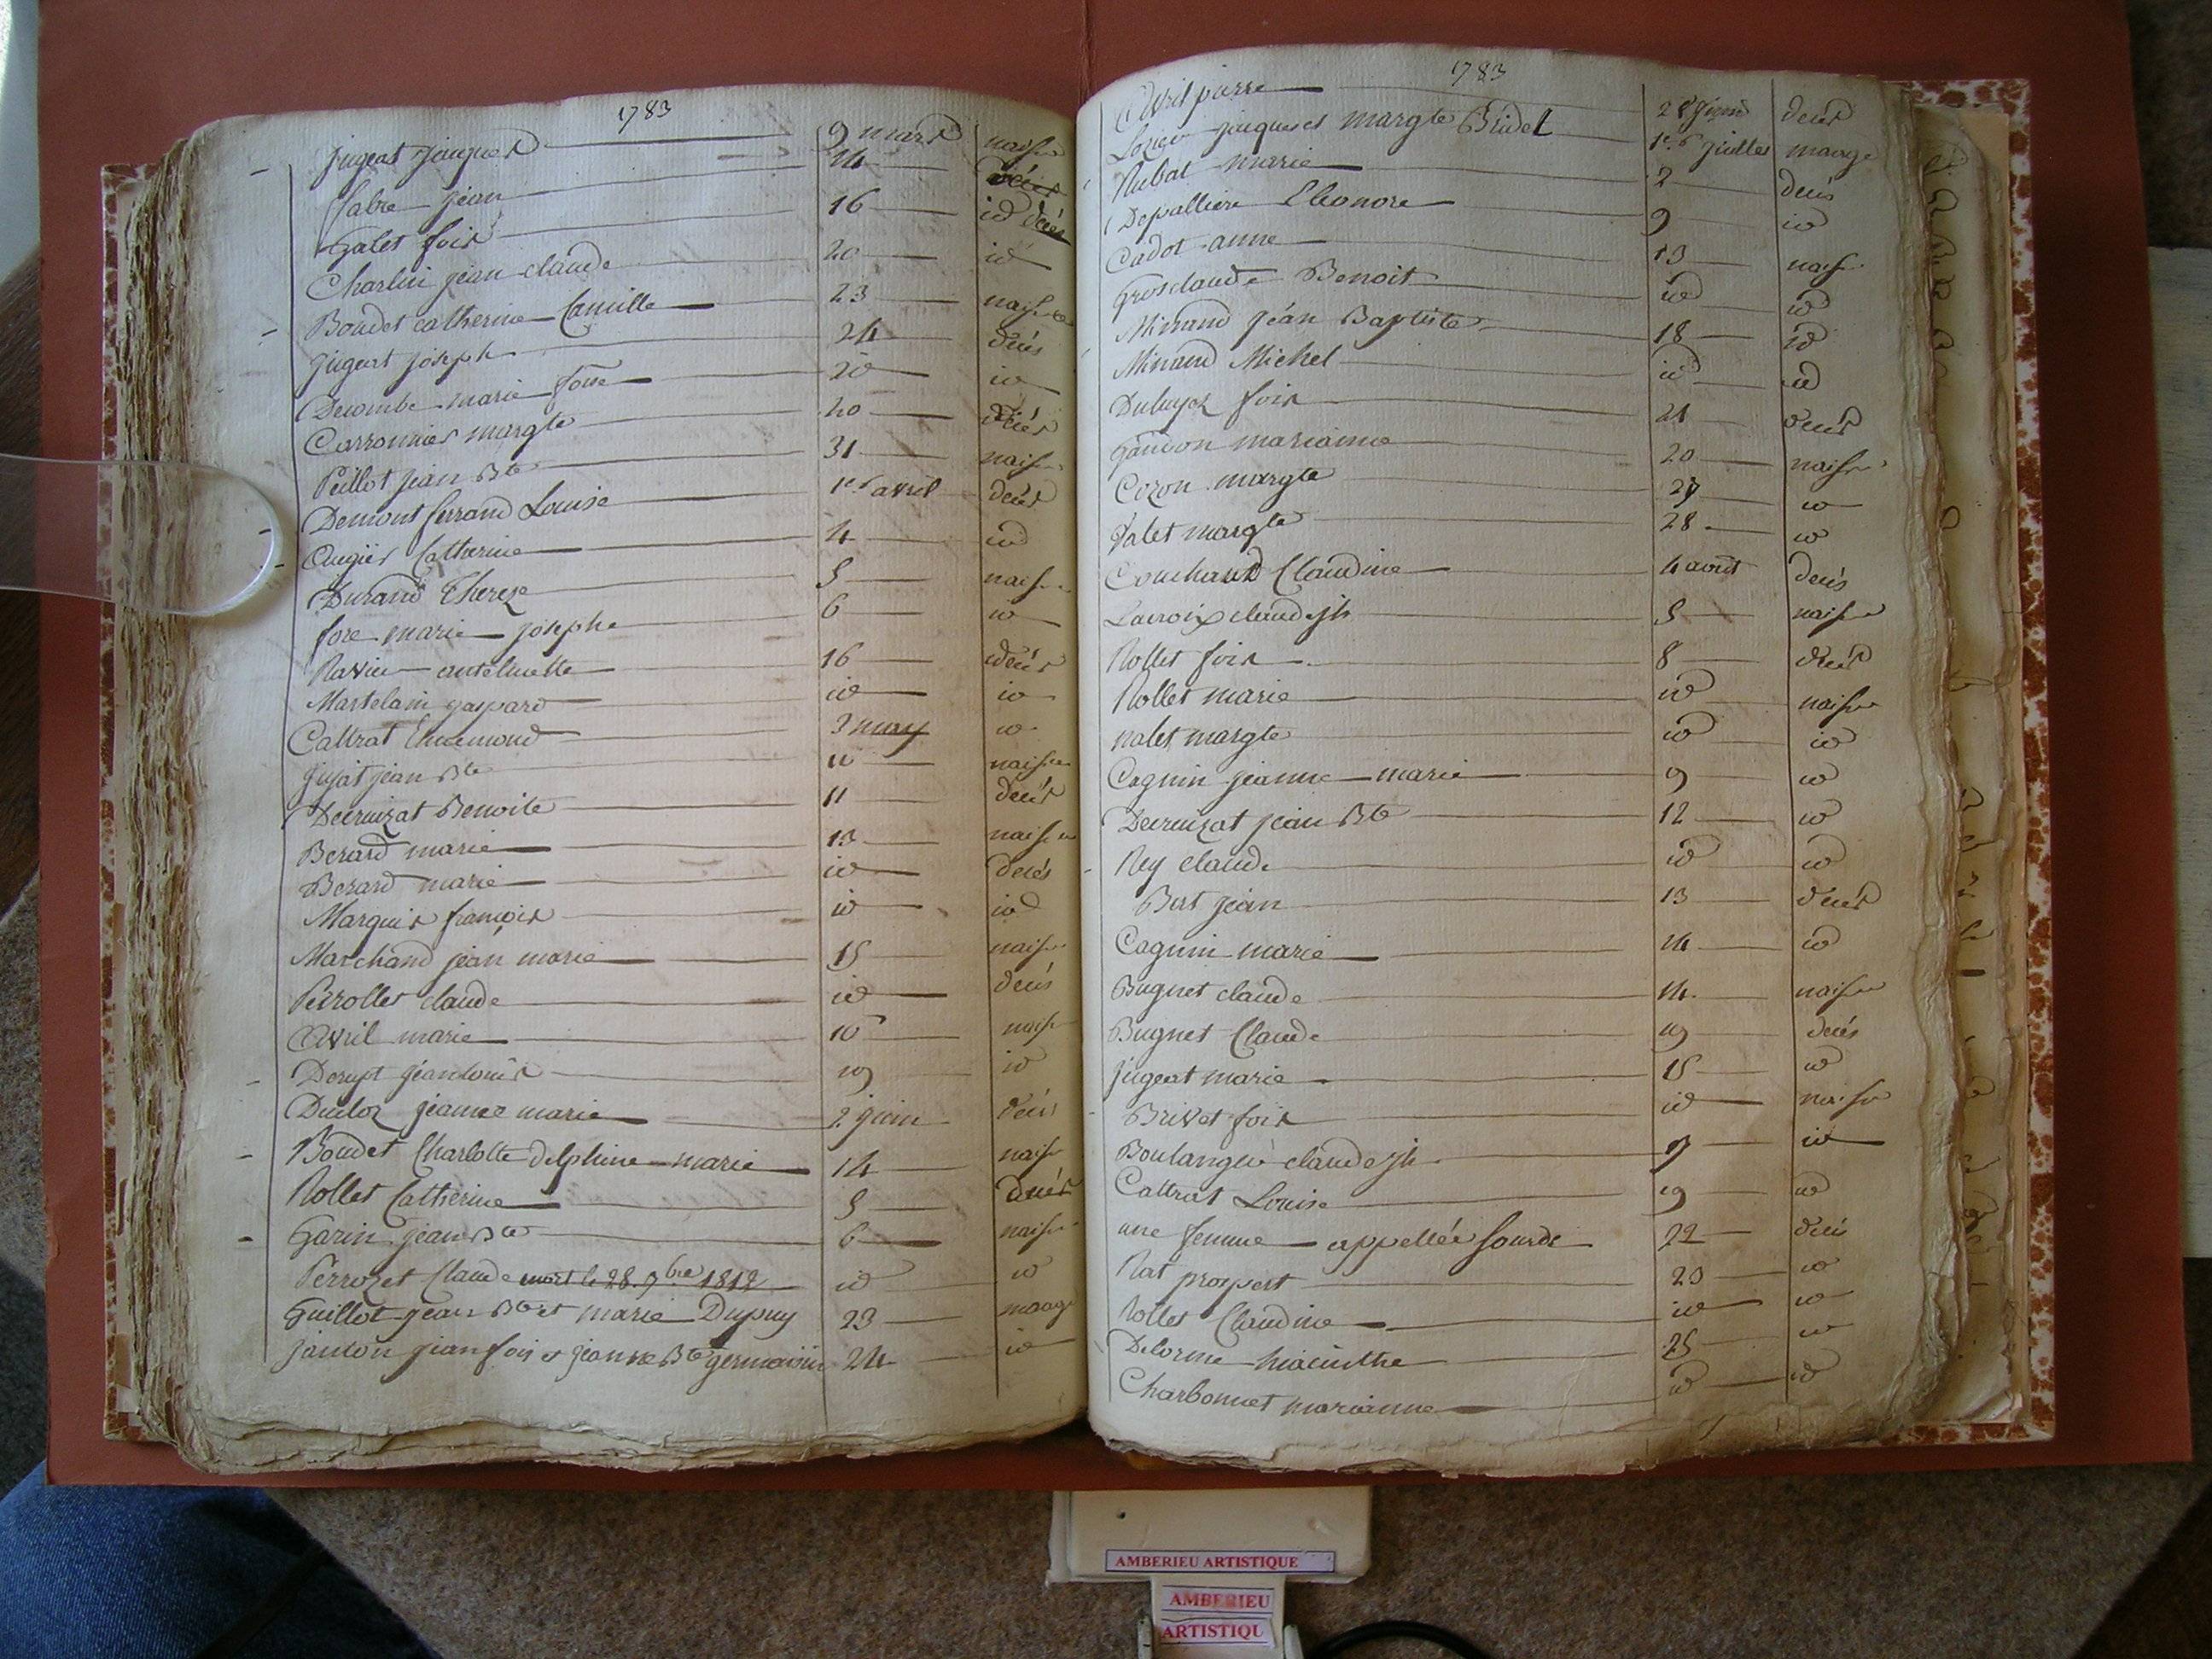 1783
jugeat jacques 9 mars naiss
fabre jean 14 décés
Galet fois 16 id décés
Charlin jean claude 20 id
Boudet catherine Camille 23 naiss
jugeat joseph 24 décés
Decombe marie id
Carronnier margte décés
Peillot jean Bte 31 naiss
Demont ferrand Louise 1er avril décés
Augier Catherine 4 id
Durand Thereze 5 naiss
fore marie josephe 6 id
Ravier antelmette 16 décés
Martelain gaspard id id
Caltrat Ennemond 3 may id
jujat jean Bte naiss
Decruizat Benoite 11 décés
Berard marie 13 naiss
Berard marie id décés
Marquis françois id id
Marchand jean marie 15 naiss
Perrollet claude id décés
Avril marie naiss
Derupt jean louis 19 id
Ducloz jeanne marie 2 juin décés
Boudet Charlotte delphine marie 14 naiss
Rollet Catherine 5 décés
Garin jean Bte 6 naiss
Perrozet Claude mort le 28 7bre 1812 id id
Guillot jean Bte et marie Dupuy 23 mariage
janton jean fois et jeanne Bte germaisin 24 id
1783
Avril pierre 28 juin décés
jacques et margte Bridel 1er juillet mariage
Rubat marie 2 décés
Depalliere Eleonore 9 id
Cadot anne 13 naiss
Grosclaude Benoit id id
Minand jean Baptiste 18 id
Minand Michel id id
fois 21 décés
Gandon marianne 20 naiss
Cozon margte 27 id
Valet margte 28 id
Couchand Claudine 4 août décés
Lacroix claude jh 5 naiss
Rollet fois 8 décés
Rollet marie id naiss
nalet margte id id
Cagnin jeanne marie 9 id
Decruizat jean Bte 12 id
Rey claude id id
Bert jean 13 décés
Cagnin marie 14 id
Bugnet claude 14 naiss
Bugnet Claude 19 décés
jugeat marie 15 id
Brivet fois id naiss
Boulanger claude jh id
Caltrat Louise 19 id
une femme appellée Sourde 22 décés
Rat prospert 23 id
Rollet Claudine id id
Delorme hiacinthe 25 id
Charbonnet marianne id id
AMBERIEU ARTISTIQUE
AMBERIEU
ARTISTIQU